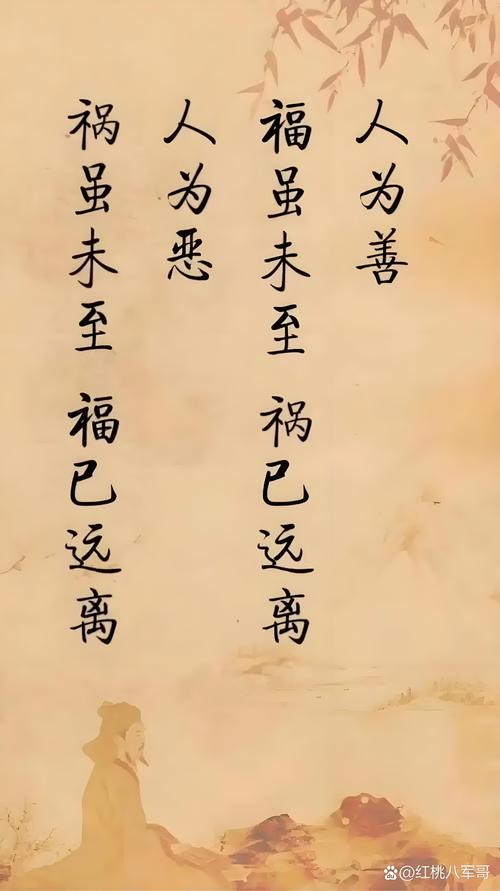 人为善
福虽未至 祸已远离
人为恶
祸虽未至 福已远离
@红桃八军哥